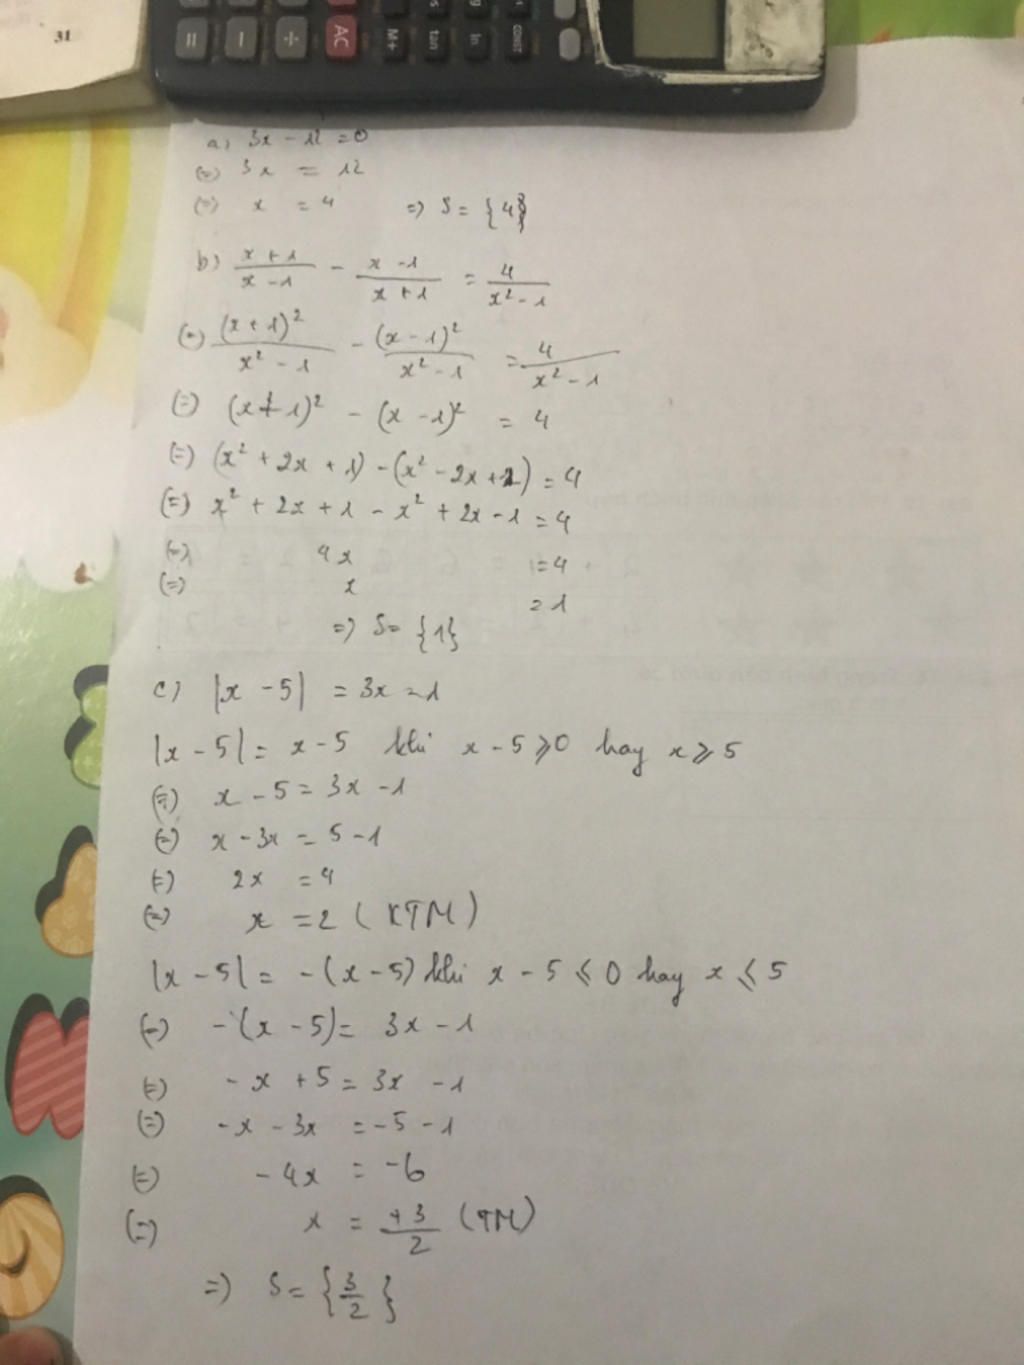 31
= − ÷ AC M+ tan ln CONST
a) 3x - 12 = 0
(=) 3x = 12
(=) x = 4 => S = {4}
b) \frac{x+1}{x-1} - \frac{x-1}{x+1} = \frac{4}{x^2-1}
(=) \frac{(x+1)^2}{x^2-1} - \frac{(x-1)^2}{x^2-1} = \frac{4}{x^2-1}
(=) (x+1)^2 - (x-1)^2 = 4
(=) (x^2 + 2x + 1) - (x^2 - 2x + 1) = 4
(=) x^2 + 2x + 1 - x^2 + 2x - 1 = 4
(=) 4x = 4
(=) x = 1
=> S = {1}
c) |x - 5| = 3x - 1
|x - 5| = x - 5 khi x - 5 ⩾ 0 hay x ⩾ 5
(=) x - 5 = 3x - 1
(=) x - 3x = 5 - 1
(=) 2x = 4
(=) x = 2 (KTM)
|x - 5| = -(x - 5) khi x - 5 ⩽ 0 hay x ⩽ 5
(=) -(x - 5) = 3x - 1
(=) -x + 5 = 3x - 1
(=) -x - 3x = -5 - 1
(=) -4x = -6
(=) x = \frac{+3}{2} (TM)
=> S = {\frac{3}{2}}